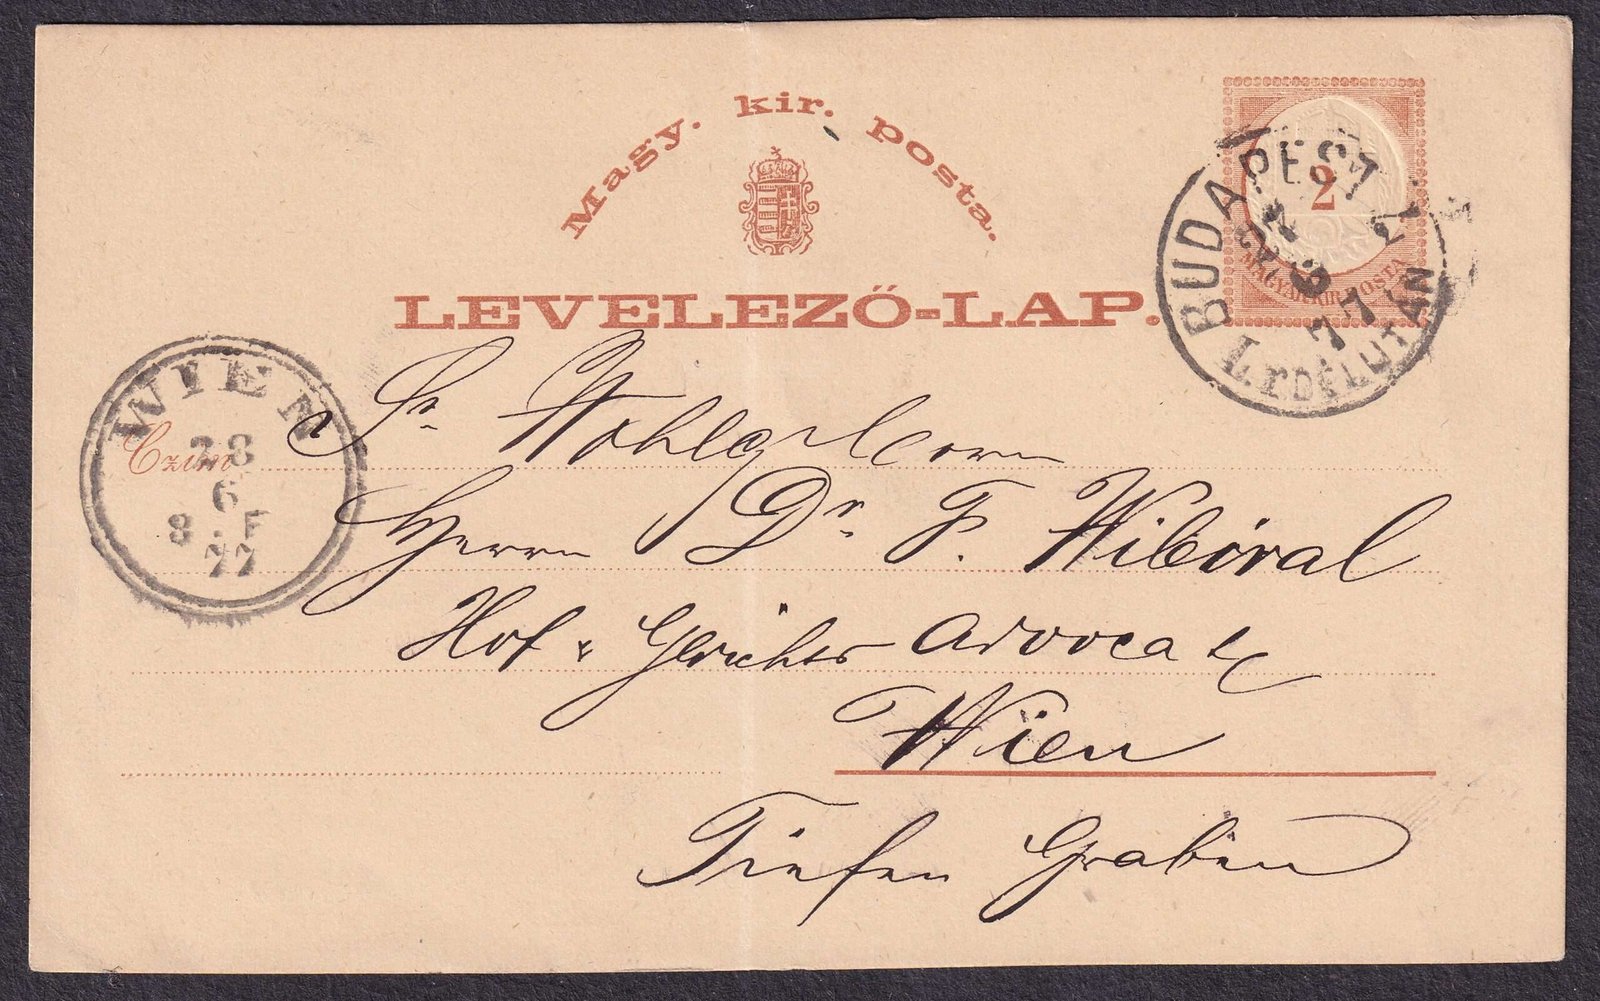 Magy. kir. posta.
2
MAGYAR KIR. POSTA
LEVELEZŐ-LAP.
BUDAPEST
77
DÉLUTÁN
WIEN
28
6
8 . F
77
Czim
Sr Wohlgeborn
Herrn Dr. F. Wiboral
Hof & Gerichts Advocat
Wien
Tiefen Graben